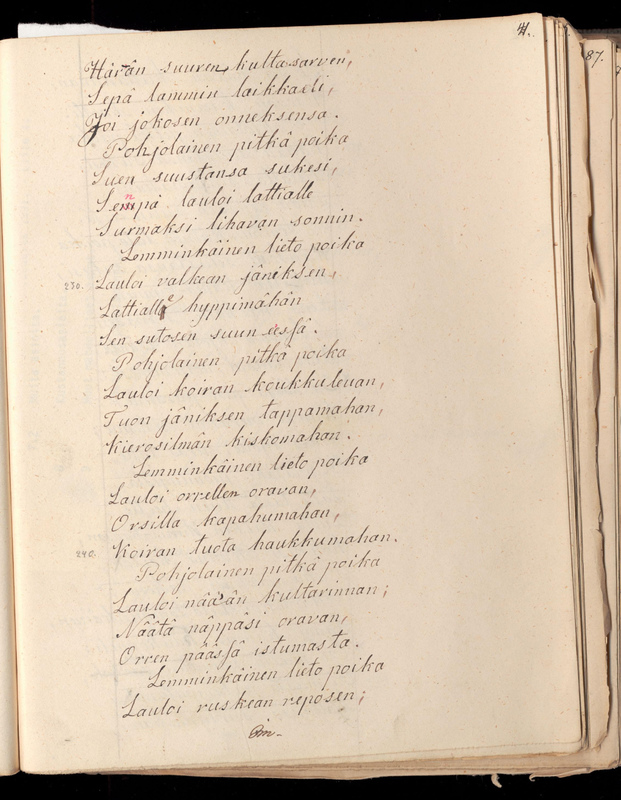 41.
87.
Härän suuren kultasarven,
Sepä lammin laikkaeli,
Joi jokosen onneksensa.
Pohjolainen pitkä poika
Suen suustansa sukesi,
Senpä lauloi lattialle
Surmaksi lihavan sonnin.
Lemminkäinen lieto poika
230. Lauloi valkean jäniksen,
Lattialle hyppimähän
Sen sutosen suun eessä.
Pohjolainen pitkä poika
Lauloi koiran koukkuleuan,
Tuon jäniksen tappamahan,
Kierosilmän kiskomahan.
Lemminkäinen lieto poika
Lauloi orrellen oravan,
Orsilla kapahumahan,
240. Koiran tuota haukkumahan.
Pohjolainen pitkä poika
Lauloi näädän kultarinnan;
Näätä näppäsi oravan,
Orren päässä istumasta.
Lemminkäinen lieto poika
Lauloi ruskean reposen;